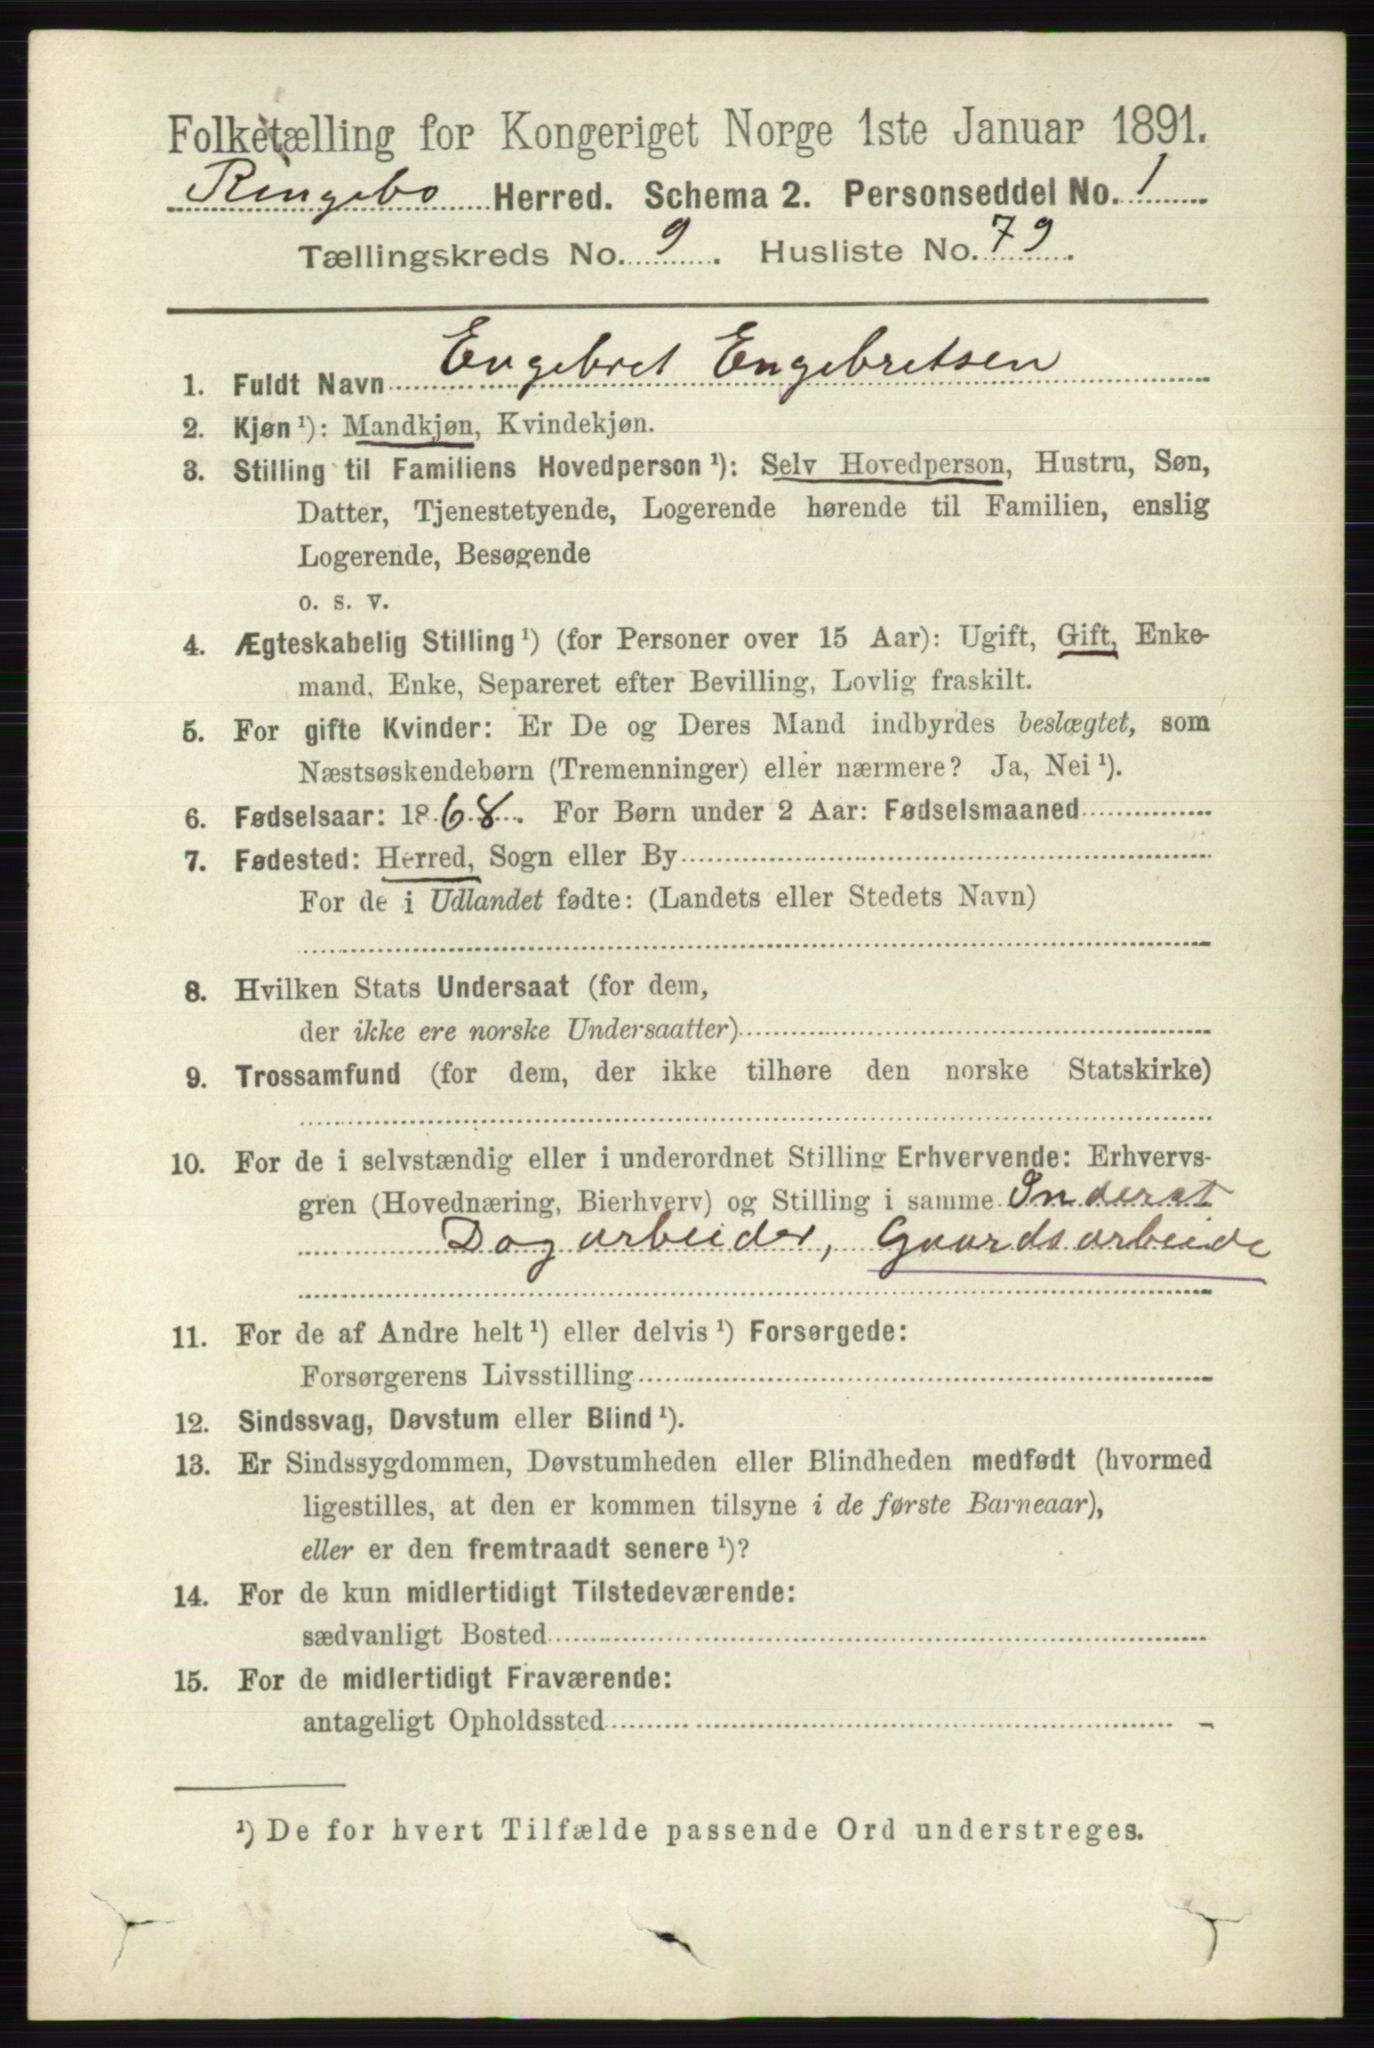 Folketælling for Kongeriget Norge 1ste Januar 1891.
Ringebo Herred. Schema 2. Personseddel No. 1
Tællingskreds No. 9. Husliste No. 79.
1. Fuldt Navn Engebret Engebretsen
2. Kjøn ¹): Mandkjøn, Kvindekjøn.
3. Stilling til Familiens Hovedperson ¹): Selv Hovedperson, Hustru, Søn,
Datter, Tjenestetyende, Logerende hørende til Familien, enslig
Logerende, Besøgende
o. s. v.
4. Ægteskabelig Stilling ¹) (for Personer over 15 Aar): Ugift, Gift, Enke-
mand, Enke, Separeret efter Bevilling, Lovlig fraskilt.
5. For gifte Kvinder: Er De og Deres Mand indbyrdes beslægtet, som
Næstsøskendebørn (Tremenninger) eller nærmere? Ja, Nei ¹).
6. Fødselsaar: 1868. For Børn under 2 Aar: Fødselsmaaned
7. Fødested: Herred, Sogn eller By
For de i Udlandet fødte: (Landets eller Stedets Navn)
8. Hvilken Stats Undersaat (for dem,
der ikke ere norske Undersaatter)
9. Trossamfund (for dem, der ikke tilhøre den norske Statskirke)
10. For de i selvstændig eller i underordnet Stilling Erhvervende: Erhvervs-
gren (Hovednæring, Bierhverv) og Stilling i samme Inderst
Dagarbeider, Gaardsarbeide
11. For de af Andre helt ¹) eller delvis ¹) Forsørgede:
Forsørgerens Livsstilling
12. Sindssvag, Døvstum eller Blind ¹).
13. Er Sindssygdommen, Døvstumheden eller Blindheden medfødt (hvormed
ligestilles, at den er kommen tilsyne i de første Barneaar),
eller er den fremtraadt senere ¹)?
14. For de kun midlertidigt Tilstedeværende:
sædvanligt Bosted
15. For de midlertidigt Fraværende:
antageligt Opholdssted
¹) De for hvert Tilfælde passende Ord understreges.